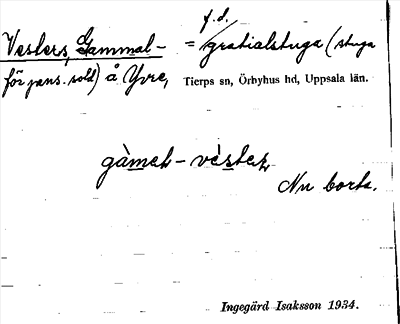 Vesters, Gammal- = f.d. gratialstuga (stuga
för pens. sold) å Yvre, Tierps sn, Örbyhus hd, Uppsala län.
gàmel-vèster
Nu borta.
Ingegärd Isaksson 1934.